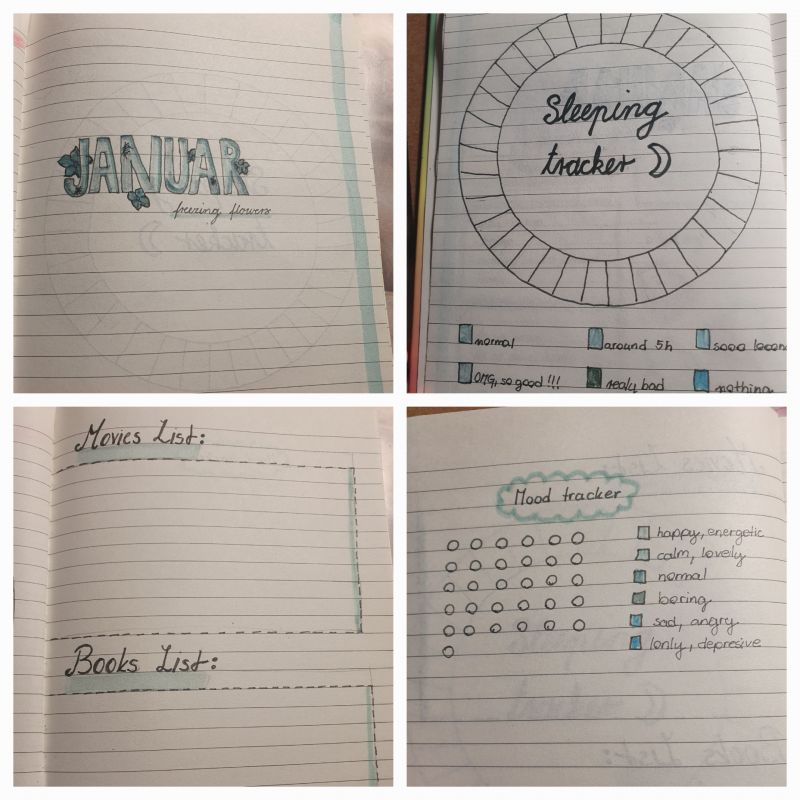 JANUAR
freezing flowers
Sleeping
tracker
normal
around 5h
sooo
OMG, so good !!!
realy bad
nothing
Movies List:
Books List:
Mood tracker
happy, energetic
calm, lovely
normal
boring
sad, angry
lonly, depresive